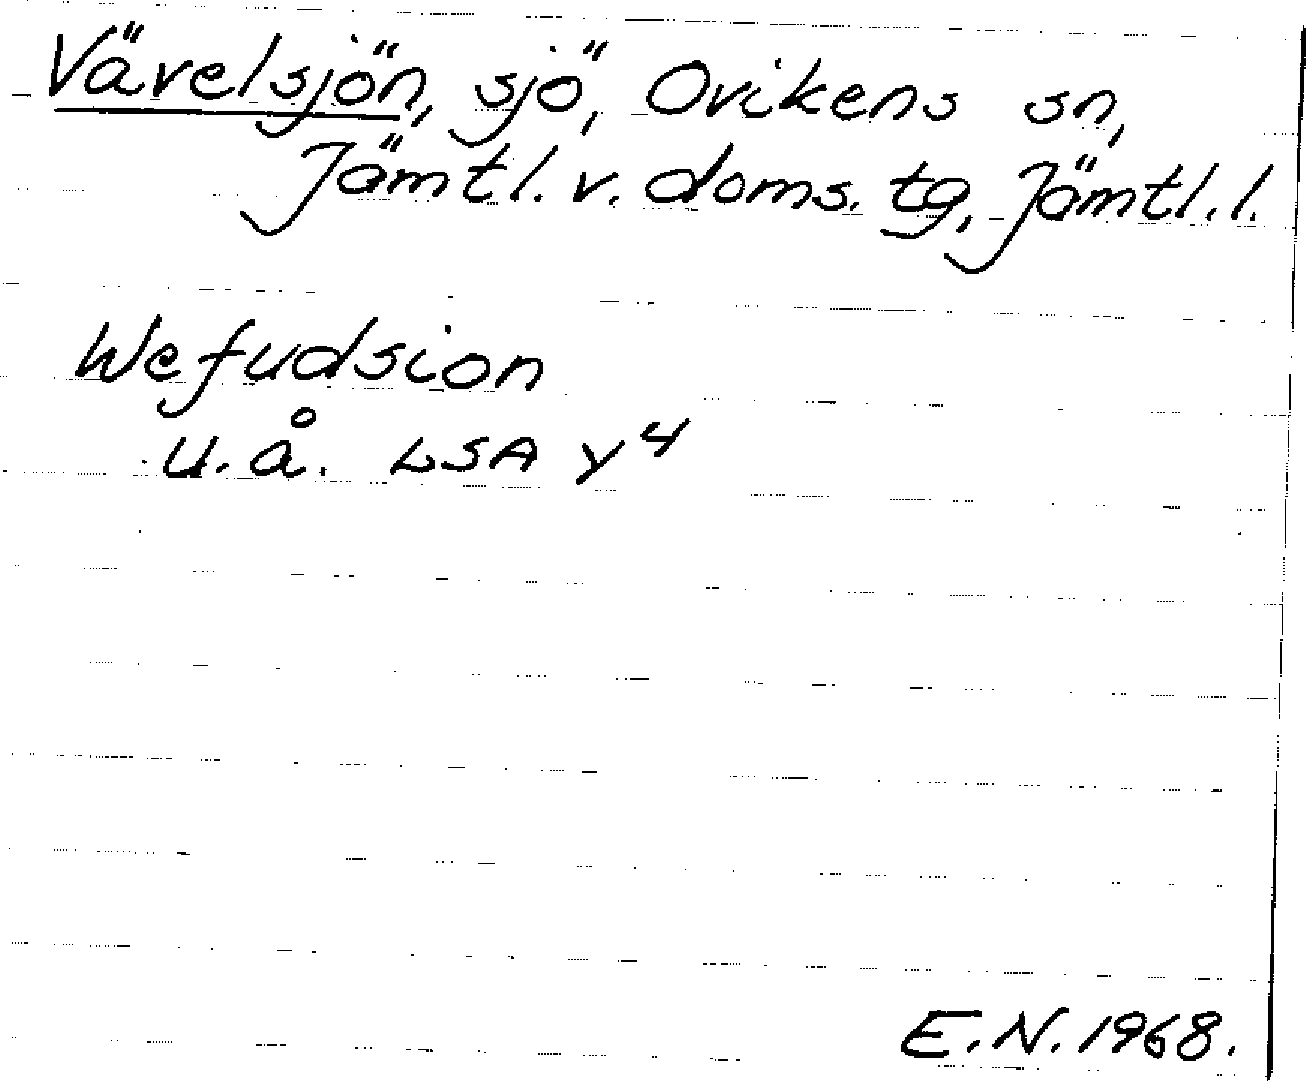 Vävelsjön, sjö, Ovikens sn,
Jämtl. v. doms. tg, Jämtl. l.
Wefudsion
u.å. LSA y4
E.N. 1968.